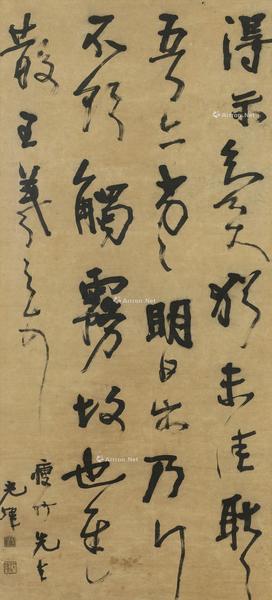 得示知足下猶未佳耿々
吾亦劣々明日出乃行
不欲觸霧故也遲
散王羲之頓首
瘦竹先生
Artron.Net